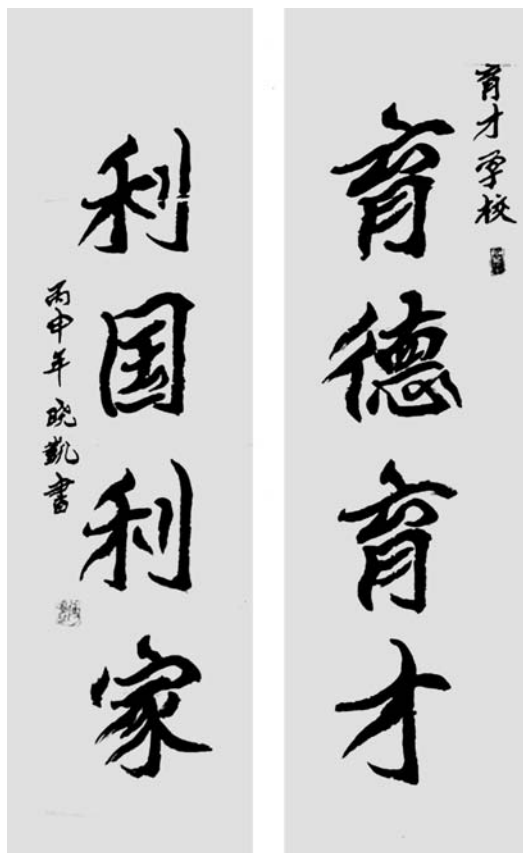 育才学校
育德育才
利国利家
丙申年 晓凯书